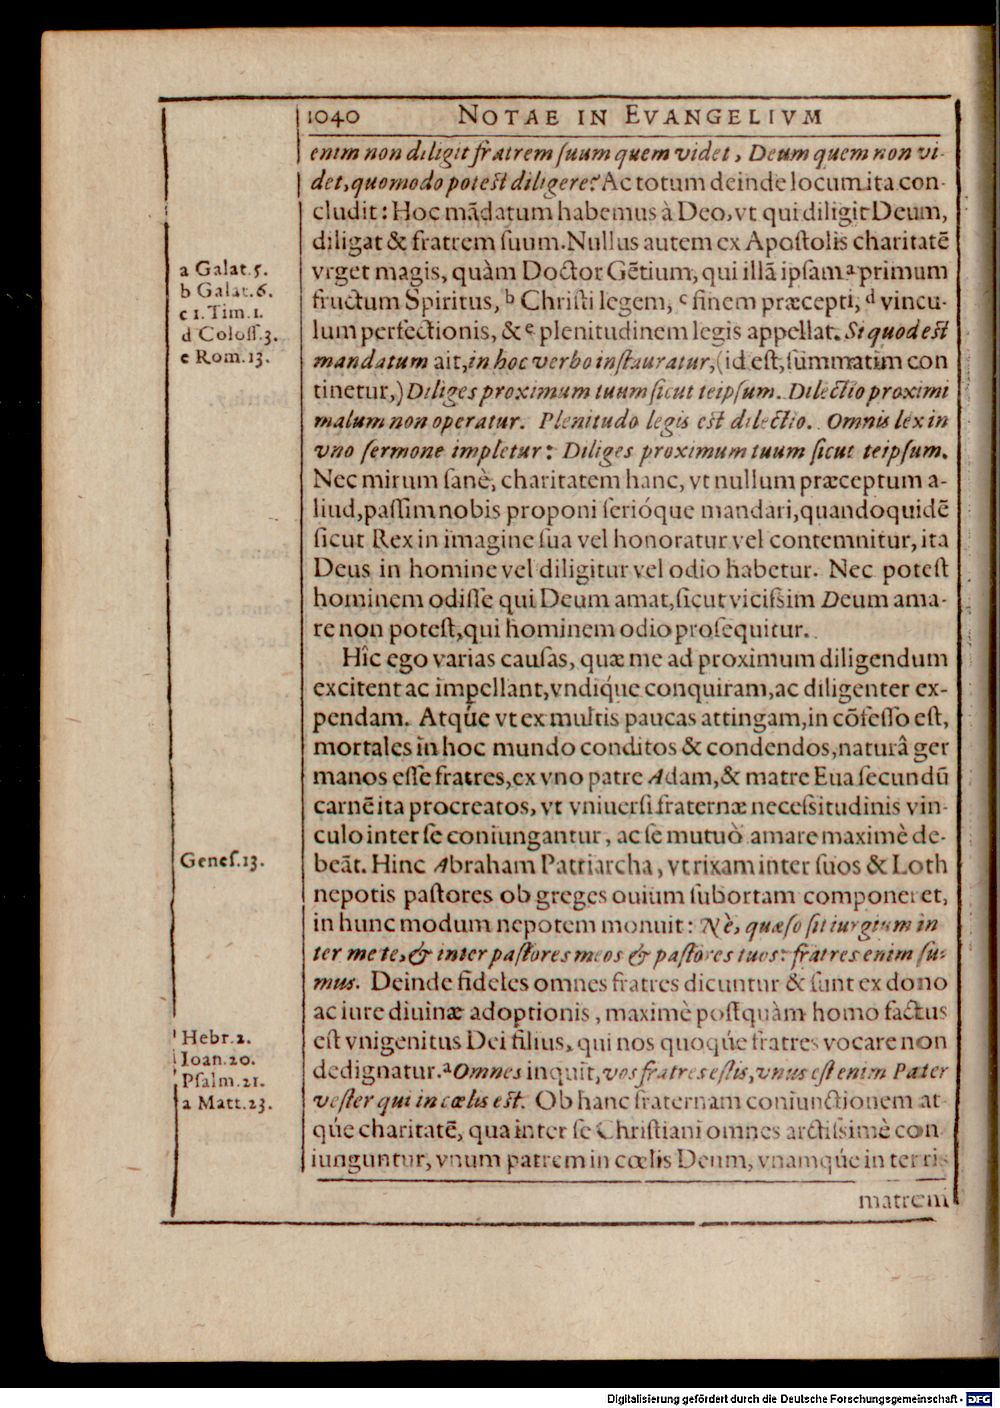 1040 NOTAE IN EVANGELIVM
enim non diligit fratrem suum quem videt, Deum quem non vi-
det, quomodo potest diligere? Ac totum deinde locum ita con-
cludit: Hoc mãdatum habemus à Deo, vt qui diligit Deum,
diligat & fratrem suum. Nullus autem ex Apostolis charitatē
vrget magis, quàm Doctor Gētium, qui illã ipsam a primum
fructum Spiritus, b Christi legem, c finem præcepti, d vincu-
lum perfectionis, & e plenitudinem legis appellat. Si quod est
mandatum ait, in hoc verbo instauratur, (id est, summatim con
tinetur,) Diliges proximum tuum sicut teipsum. Dilectio proximi
malum non operatur. Plenitudo legis est dilectio. Omnis lex in
vno sermone impletur: Diliges proximum tuum sicut teipsum.
Nec mirum sanè, charitatem hanc, vt nullum præceptum a-
liud, passim nobis proponi serióque mandari, quandoquidē
sicut Rex in imagine sua vel honoratur vel contemnitur, ita
Deus in homine vel diligitur vel odio habetur. Nec potest
hominem odisse qui Deum amat, sicut vicissim Deum ama-
re non potest, qui hominem odio prosequitur.
Hîc ego varias causas, quæ me ad proximum diligendum
excitent ac impellant, vndiq́ue conquiram, ac diligenter ex-
pendam. Atq́ue vt ex multis paucas attingam, in cõfesso est,
mortales in hoc mundo conditos & condendos, naturâ ger
manos esse fratres, ex vno patre Adam, & matre Eua secundũ
carnē ita procreatos, vt vniuersi fraternæ necessitudinis vin-
culo inter se coniungantur, ac se mutuò amare maximè de-
beãt. Hinc Abraham Patriarcha, vt rixam inter suos & Loth
nepotis pastores ob greges ouium subortam componeret,
in hunc modum nepotem monuit: Nè, quæso sit iurgium in
ter me te, & inter pastores meos & pastores tuos: fratres enim su-
mus. Deinde fideles omnes fratres dicuntur & sunt ex dono
ac iure diuinæ adoptionis, maximè postquàm homo factus
est vnigenitus Dei filius, qui nos quoq́ue fratres vocare non
dedignatur. a Omnes inquit, vos fratres estis, vnus est enim Pater
vester qui in cælis est. Ob hanc fraternam coniunctionem at-
q́ue charitatē, qua inter se Christiani omnes arctissimè con
iunguntur, vnum patrem in cœlis Deum, vnamq́ue in terris
matrem
a Galat.5.
b Galat.6.
c 1.Tim.1.
d Coloss.3.
e Rom.13.
Genes.13.
Hebr.2.
Ioan.20.
Psalm.21.
a Matt.23.
Digitalisierung gefördert durch die Deutsche Forschungsgemeinschaft - DFG